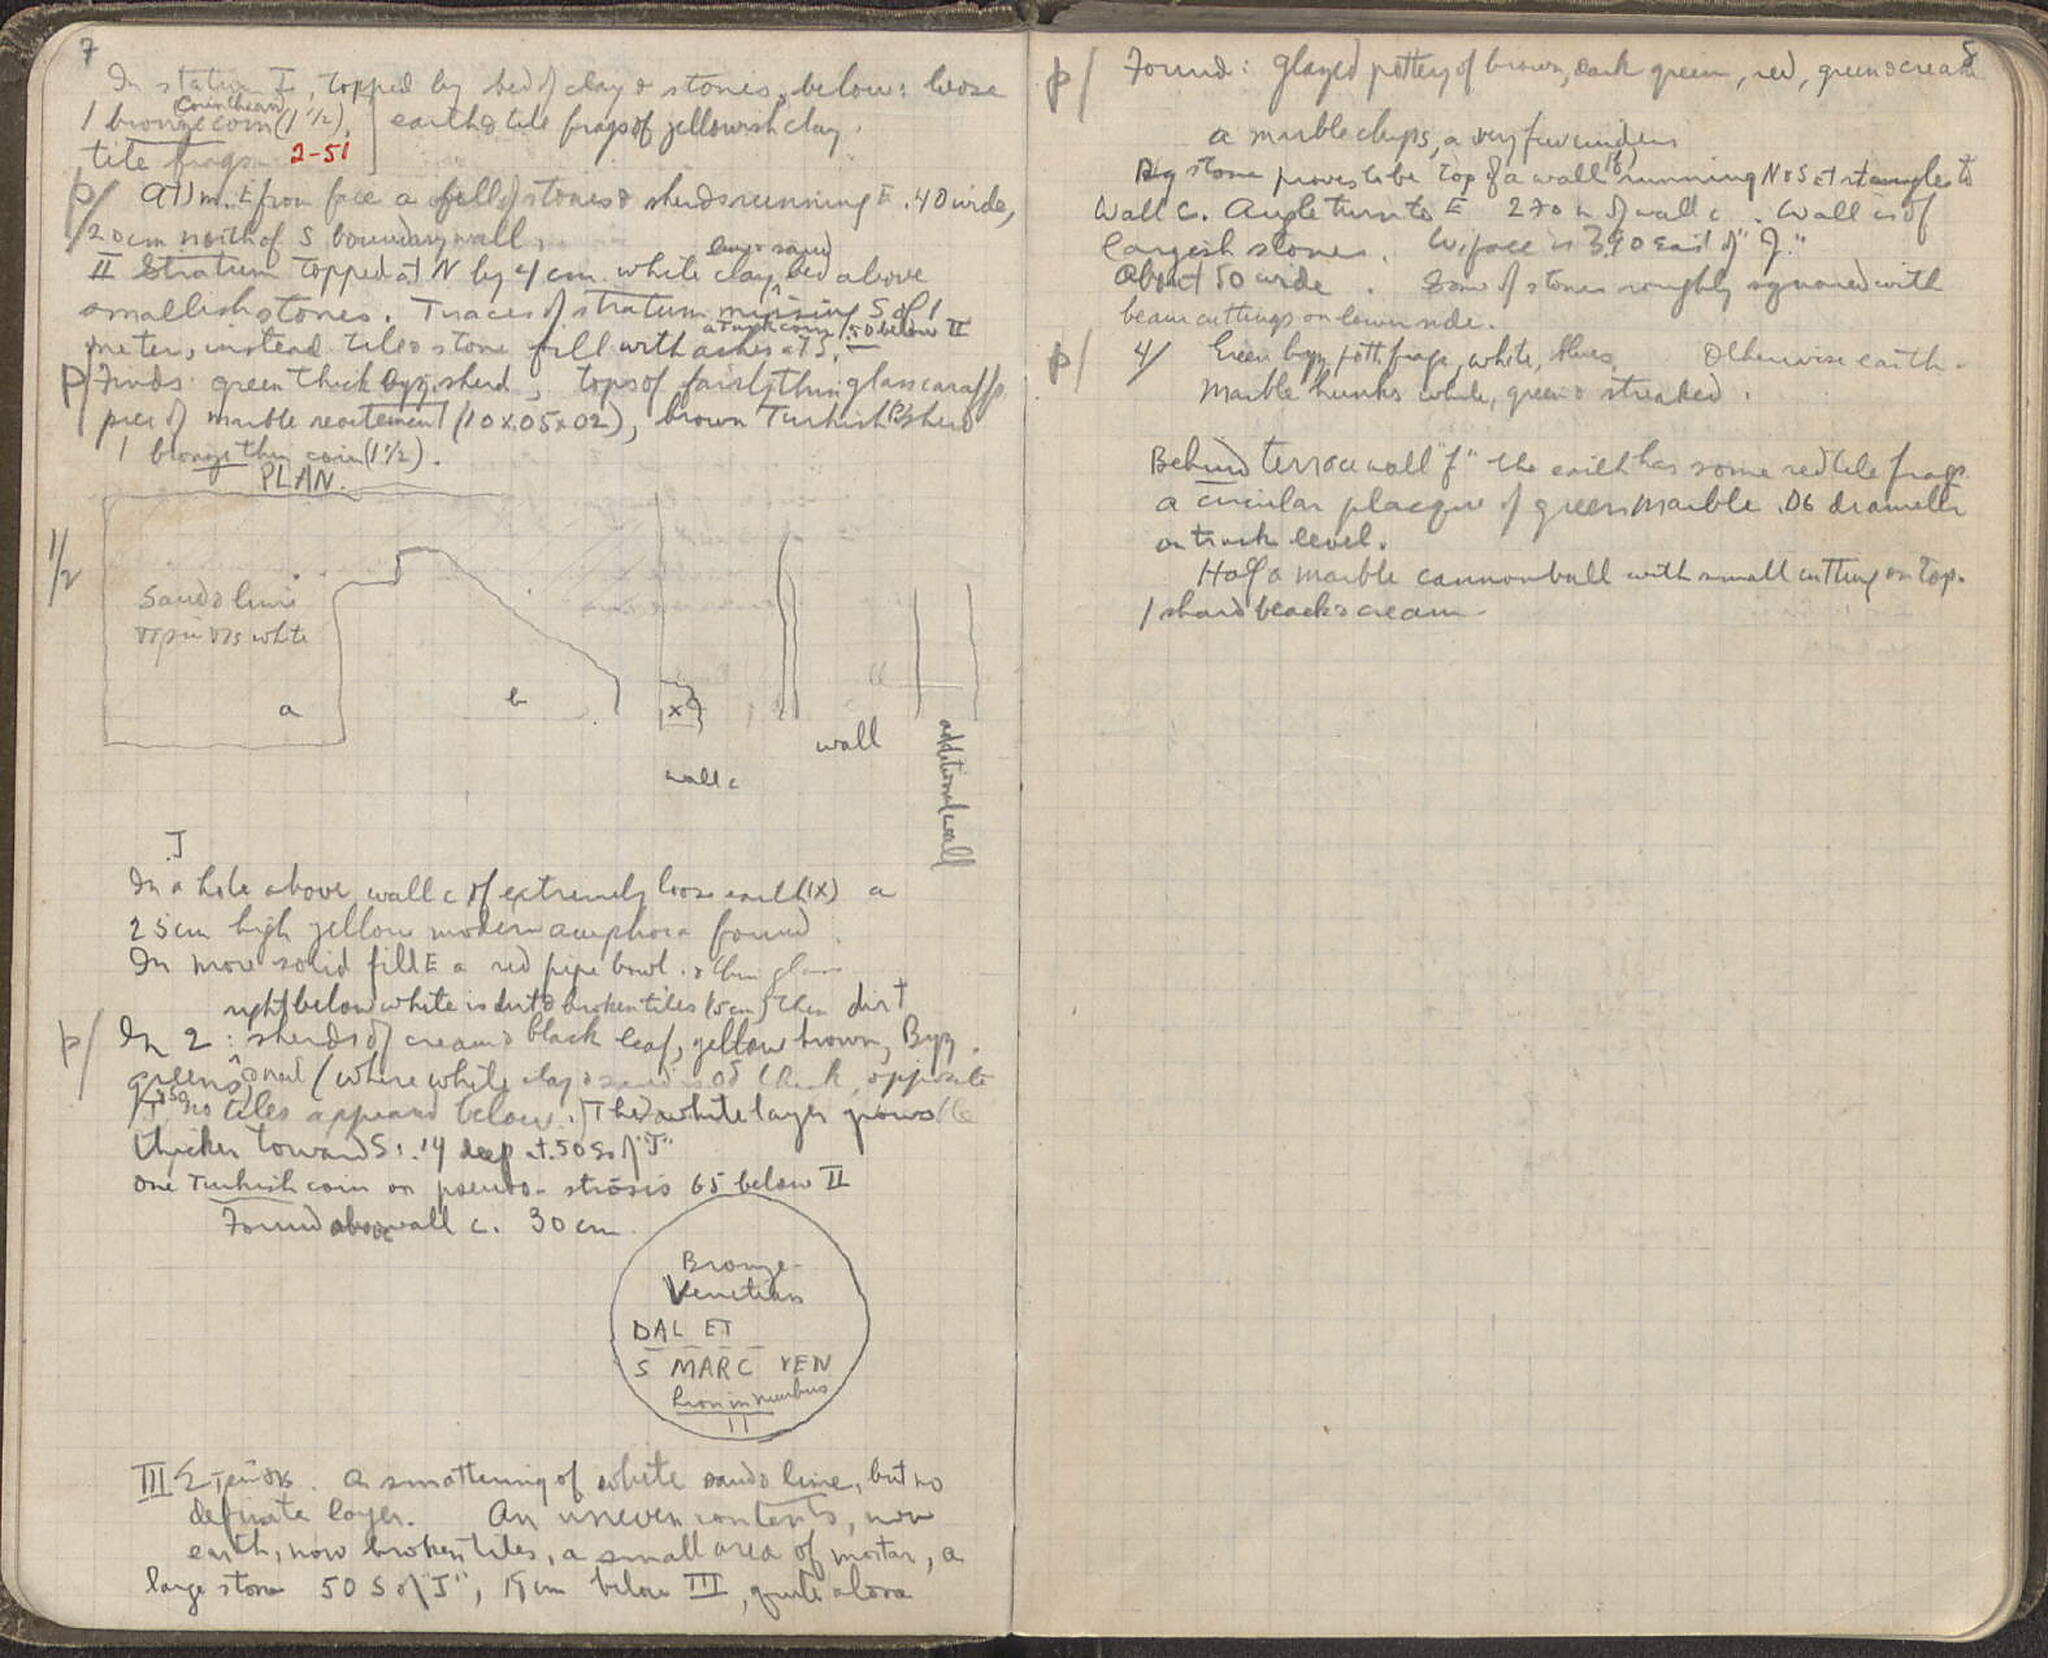 7
In stratum I, topped by bed of clay & stones, below: loose
Corinthian
1 bronze coin (1 1/2), earth & tile frags of yellowish clay.
tile frags 2-51
p/ At 1 m. E from face a fill of stones & sherds running E .40 wide,
20 cm north of S boundary wall.
lime & sand
II Stratum topped at N by 4 cm white clay, bed above
smallish stones. Traces of stratum missing S of 1
a Turk coin .50 below II
meter, instead tile & stone fill with ashes at 3.
p/ Finds: green thick byz. sherd, tops of fairly thin glass carafe
piece of marble revetement (10 x .05 x 02), brown Turkish sherd
1 bronze thin coin (1 1/2).
PLAN.
1/2
Sand & lime
white
a
b
x
wall
wall c
additional wall
J
In a hole above wall c of extremely loose earth (x) a
25 cm high yellow modern amphora found.
In more solid fill E a red pipe bowl. & thin glass
right below white is dirt & broken tiles (5 cm) then dirt
p/ In 2: sherds of cream & black leaf, yellow brown, Byz.
greens & red (where white clay & sand is 05 thick, opposite
no tiles appeared below.) The white layer grows
thicker toward S: .14 deep at .50 S. of "J"
One Turkish coin on pseudo-strosis 65 below II
Found above wall c. 30 cm
Bronze-
Venetian
DAL ET
S MARC VEN
Lion in numbus
II
III Στρῶσις. A smattering of white sand & lime, but no
definate layer. An uneven contents, now
earth, now broken tiles, a small area of mortar, a
large stone 50 S of "J", 15 cm below III, quite alone
8
p/ Found: glazed pottery of brown, dark green, red, green & cream
a marble chips, a very few cinders
Big stone proves to be top of a wall (f) running N & S at rt angles to
Wall c. Angle turn to E 270 n of wall c. Wall is of
largish stones. W. face is 3.90 East of "J."
About 50 wide. Some of stones roughly squared with
beam cuttings on lower side.
p/ 4/ Green byz pott. frags, white, blues. Otherwise earth.
Marble hunks white, green & streaked.
Behind terrace wall "f" the earth has some red tile frags
a circular placque of green marble .06 diameter
on track level.
Half a marble cannonball with small cutting on top.
1 shard black & cream.